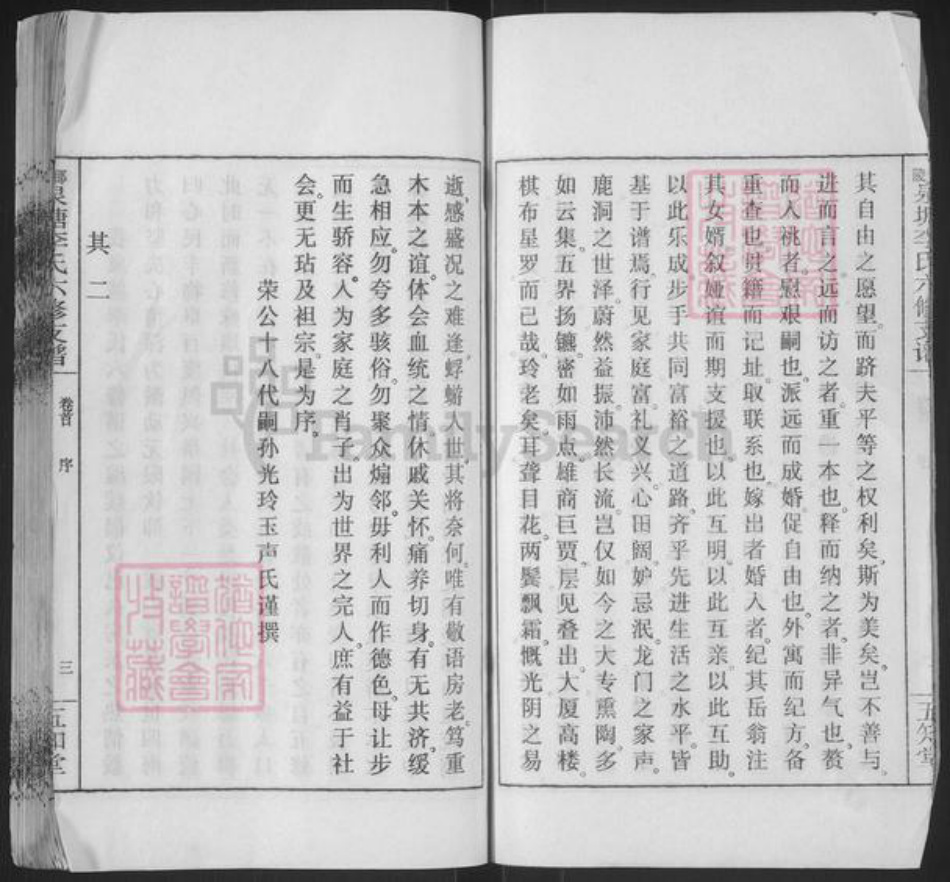 其自由之愿望而跻夫平等之权利矣。斯为美矣。岂不善与。
进而言之远而访之者。重一本也。释而纳之者。非异气也。赘
而入祧者。慰艰嗣也。派远而成婚。促自由也。外寓而纪方。备
重查也。异籍而记址。取联系也。嫁出者婚入者。纪其岳翁注
其女婿。叙娅谊而期支援也。以此互明。以此互亲。以此互助。
以此乐成步手共同富裕之道路。齐乎先进生活之水平。皆
基于谱焉。行见家庭富。礼义兴。心田阔。妒忌泯。龙门之家声。
鹿洞之世泽。蔚然益振。沛然长流。岂仅如今之大专熏陶。多
如云集。五界扬镳。密如雨点。雄商巨贾。层见叠出。大厦高楼。
棋布星罗而已哉。玲老矣。耳聋目花。两鬓飘霜。慨光阴之易
逝。感盛况之难逢。蜉蝣人世。其将奈何。唯有敬语房老。笃重
木本之谊。体会血统之情。休戚关怀。痛养切身。有无共济。缓
急相应。勿夸多骇俗。勿聚众煽邻。毋利人而作德色。毋让步
而生骄容。人为家庭之肖子。出为世界之完人。庶有益于社
会。更无玷及祖宗。是为序。
荣公十八代嗣孙光玲玉声氏谨撰
其二
泉塘李氏六修支谱
卷首
序
三
五知堂